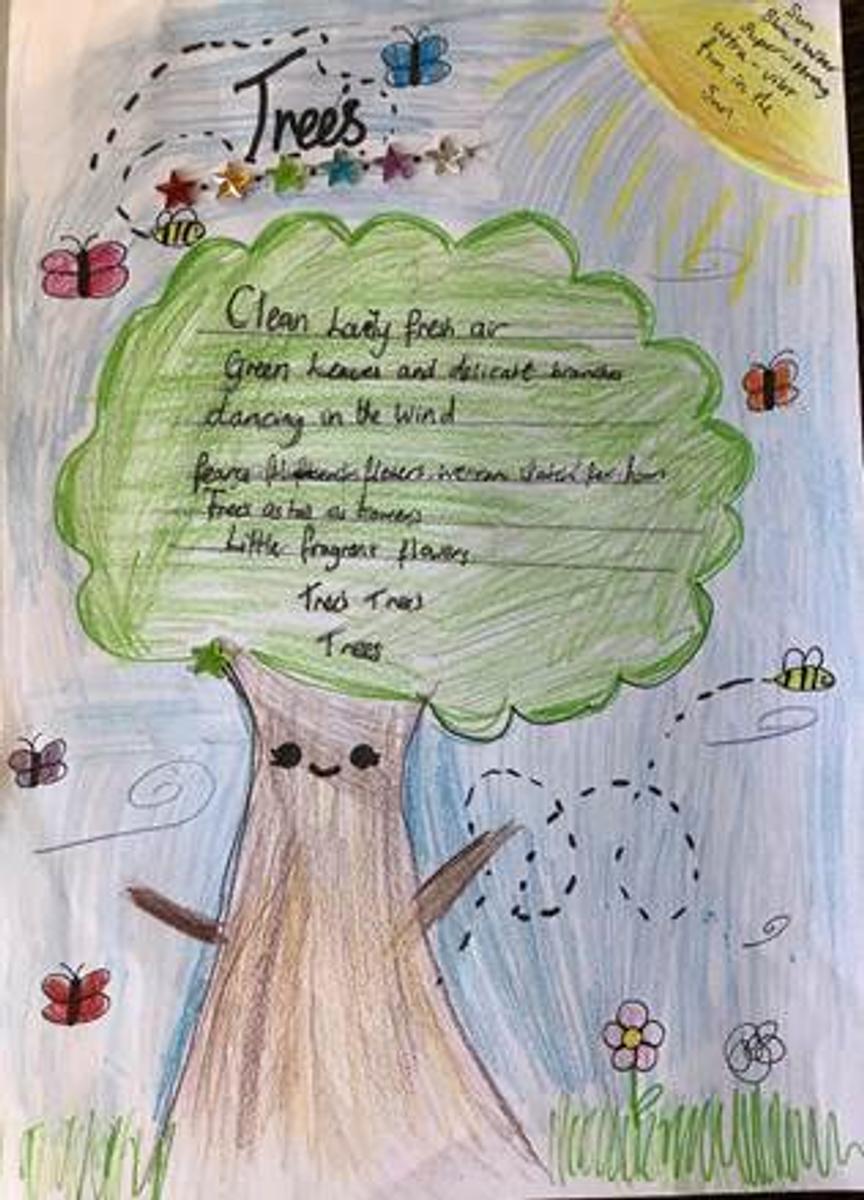 Trees
Sun
super-strong
ultra-
fun in the
Sun
Clean Lovely fresh air
Green Leaves and delicate branches
dancing in the wind
flowers we can
Trees as tall as towers
Little fragrant flowers
Trees Trees
Trees